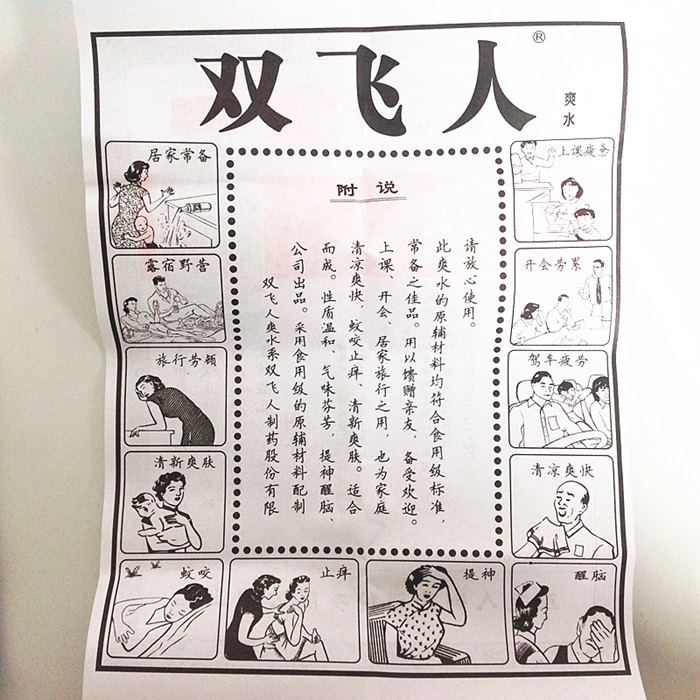 双飞人®
爽水
居家常备
露宿野营
旅行劳顿
清新爽肤
附说
双飞人爽水系双飞人制药股份有限
公司出品。采用食用级的原辅材料配制
而成。性质温和、气味芬芳，提神醒脑、
清凉爽快，蚊咬止痒、清新爽肤。适合
上课、开会、居家旅行之用，也为家庭
常备之佳品。用以馈赠亲友，备受欢迎。
此爽水的原辅材料均符合食用级标准，
请放心使用。
上课疲惫
开会劳累
驾车疲劳
清凉爽快
蚊咬
止痒
提神
醒脑